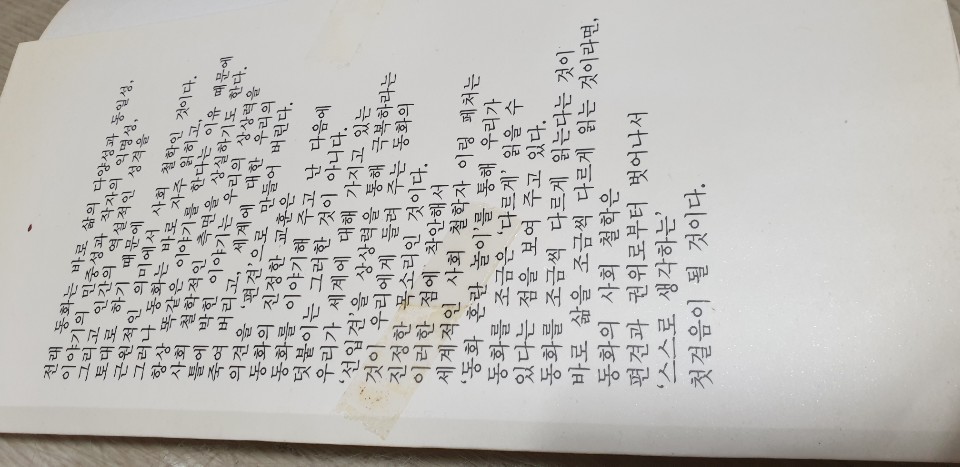 전래 동화는 바로 삶의 다양성과 동일성,
이야기의 민중성과 작자의 익명성,
그리고 인간의 역설적인 성격을
토대로 하기 때문에
근원적인 의미에서 사회 철학인 것이다.
그러나 동화는 바로 자주 읽히고,
항상 똑같은 이야기를 한다는 이유 때문에
사회 철학적인 측면을 상실하기도 한다.
틀에 박힌 이야기는 우리의 상상력을
죽여 버리고, 세계에 대한 우리의
의견을 '편견'으로 만들어 버린다.
동화의 진정한 교훈은
동화를 이야기해 주고 난 다음에
덧붙이는 그러한 것이 아니다.
우리가 세계에 대해 가지고 있는
'선입견'을 상상력을 통해 극복하라는
것이 우리에게 들려 주는 동화의
진정한 목소리인 것이다.
이러한 점에 착안해서
세계적인 사회 철학자 이링 페처는
'동화 혼란 놀이'를 통해 우리가
동화를 조금은 '다르게' 읽을 수
있다는 점을 보여 주고 있다.
동화를 조금씩 다르게 읽는다는 것이
바로 삶을 조금씩 다르게 읽는 것이라면,
동화의 사회 철학은
편견과 권위로부터 벗어나서
'스스로 생각하는'
첫걸음이 될 것이다.